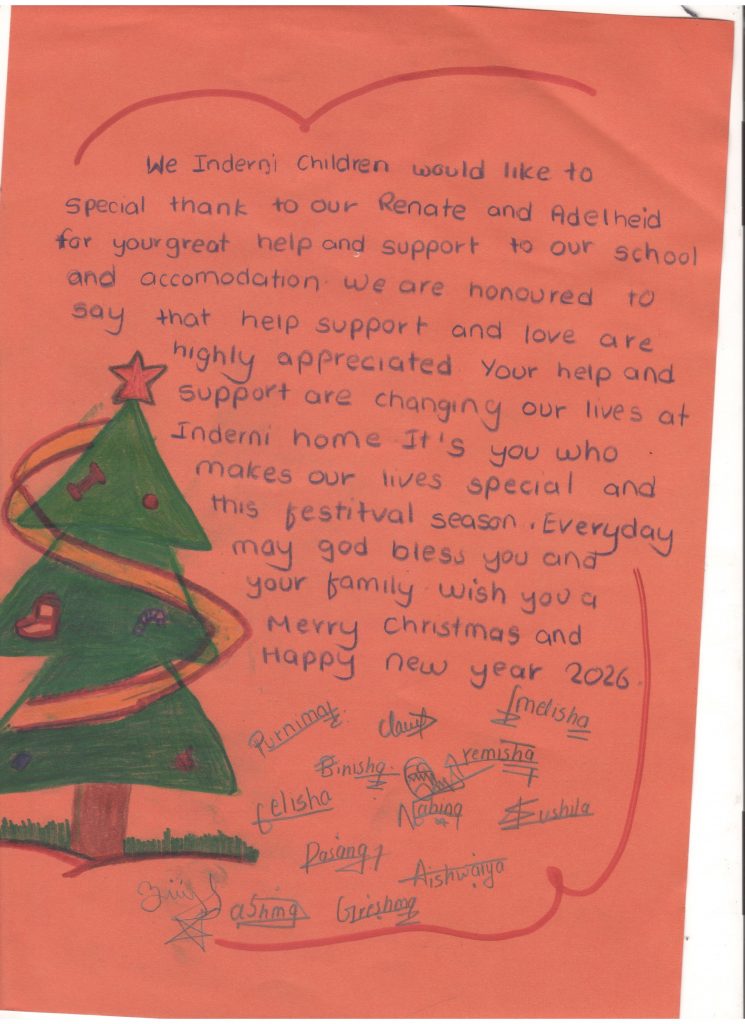 We Inderni Children would like to
special thank to our Renate and Adelheid
for your great help and support to our school
and accomodation. We are honoured to
say that help support and love are
highly appreciated. Your help and
support are changing our lives at
Inderni home It's you who
makes our lives special and
this festitval season. Everyday
may god bless you and
your family. wish you a
Merry Christmas and
Happy new year 2026.
Purnima
Smelisha
Binisha
Premisha
felisha
Nabina
Sushila
Pasang
Aishwarya
aShma
Greeshma